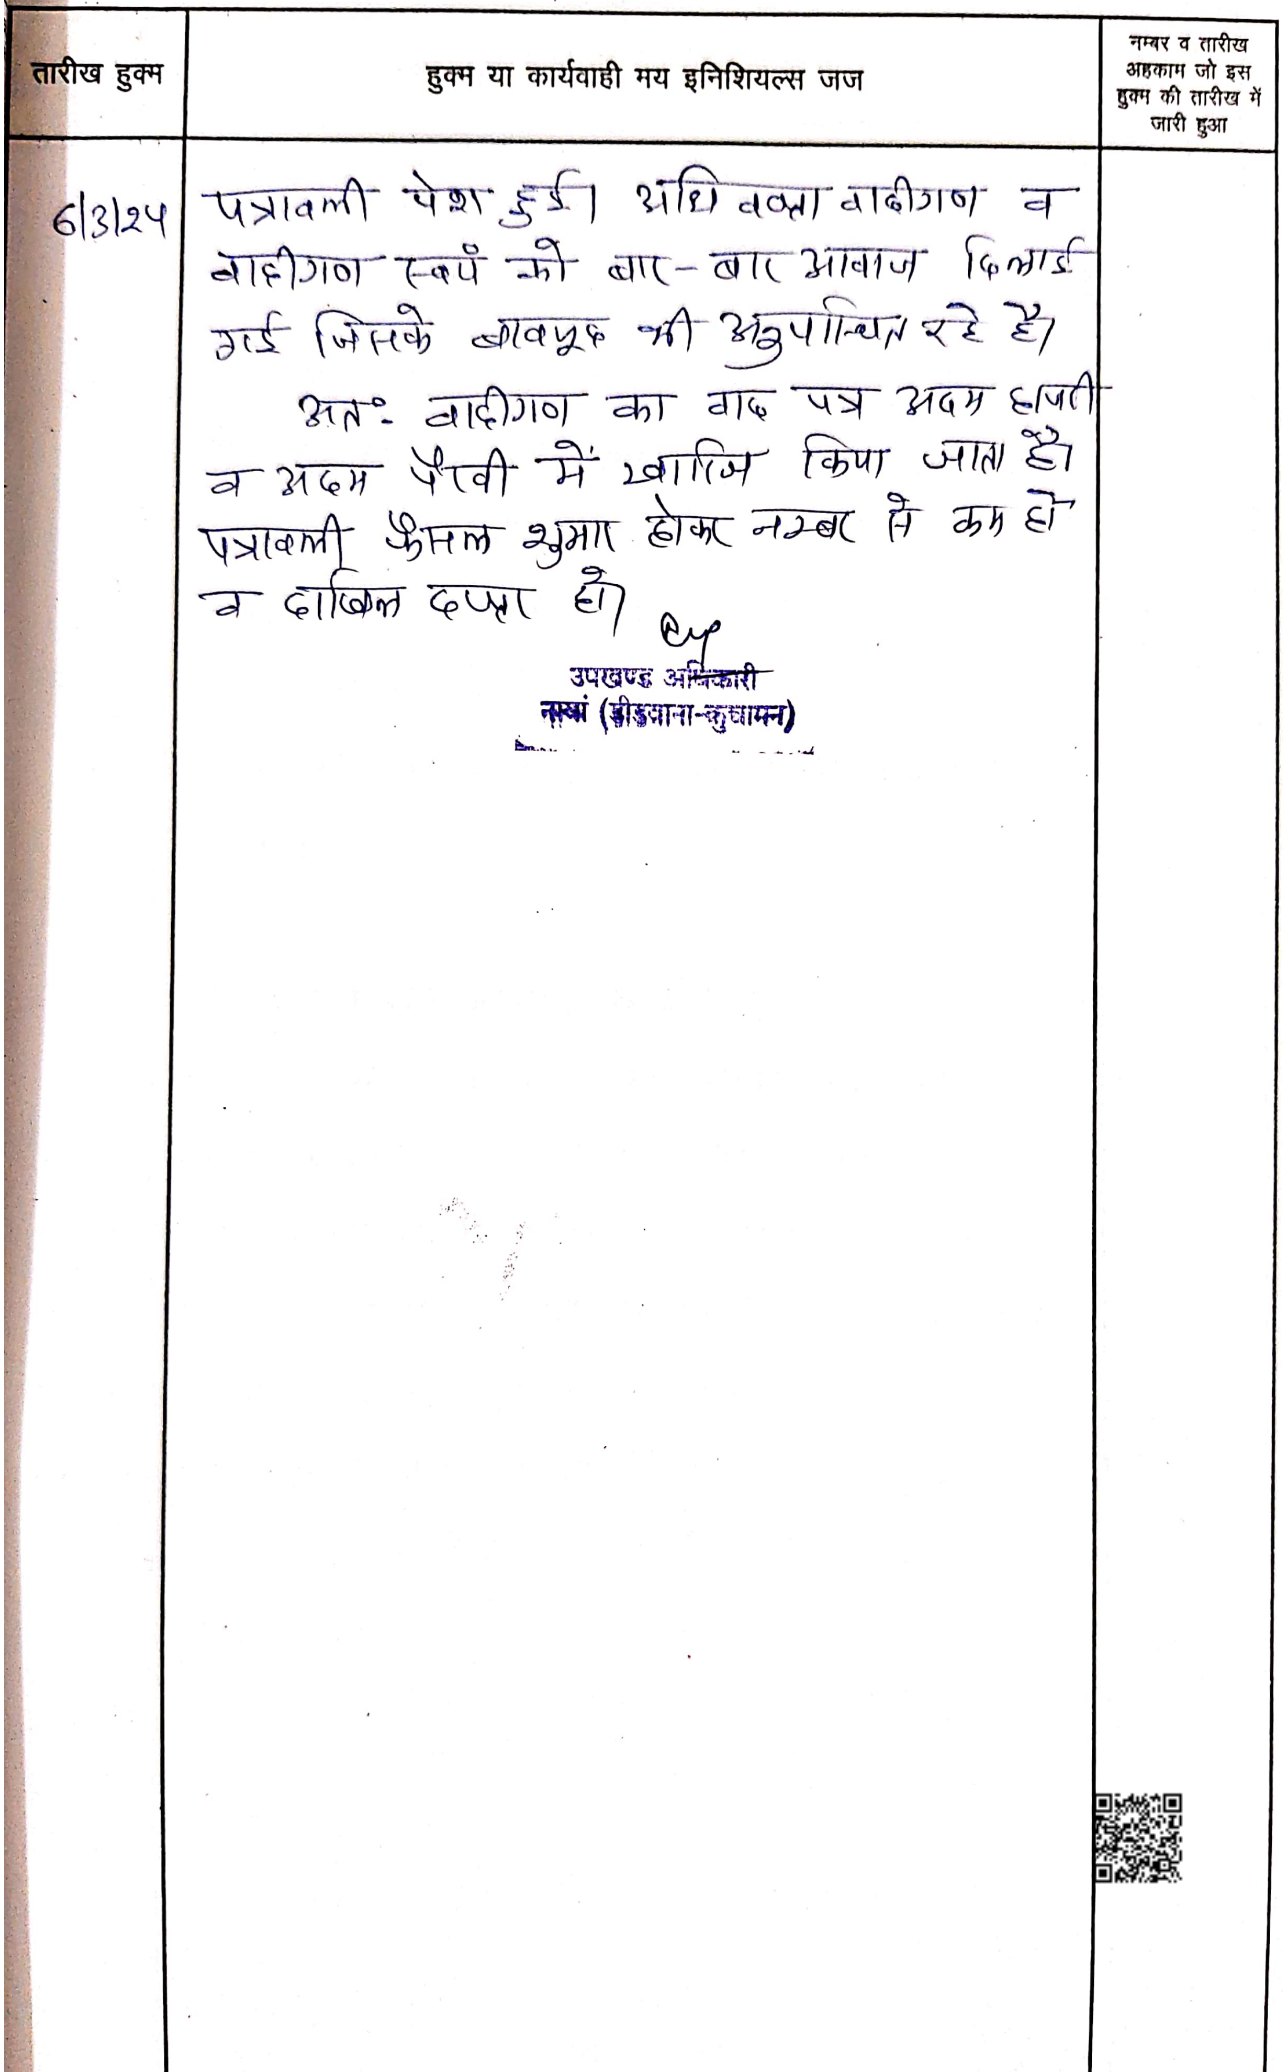 तारीख हुक्म
हुक्म या कार्यवाही मय इनिशियल्स जज
नम्बर व तारीख
अहकाम जो इस
हुक्म की तारीख में
जारी हुआ
6/3/24
पत्रावली पेश हुई। अधिवक्ता वादीगण व
वादीगण स्वयं को बार-बार आवाज दिलाई
गई जिसके बावजूद भी अनुपस्थित रहे है।
अतः वादीगण का वाद पत्र अदम हाजरी
व अदम पैरवी में खारिज किया जाता है।
पत्रावली फैसल शुमार होकर नम्बर से कम हो
व दाखिल दफ्तर हो।
उपखण्ड अधिकारी
नावां (डीडवाना-कुचामन)